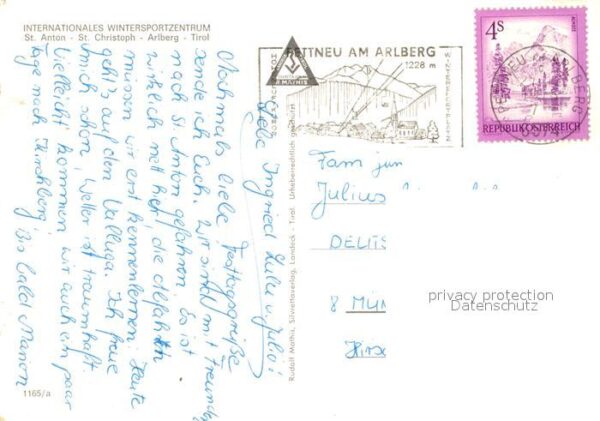 INTERNATIONALES WINTERSPORTZENTRUM
St. Anton - St. Christoph - Arlberg - Tirol
Liebe Ingried Lulu u. Julio!
Nochmals liebe Festtagsgrüße
sende ich Euch. Wir sind mit Freunden
nach St. Anton gefahren. Es ist
wirklich nett hier, die Abfahrten
müssen wir erst kennenlernen. Heute
geht's auf den Valluga. Ich freue
mich schon, Wetter ist traumhaft.
Vielleicht kommen wir auch ein paar
Tage nach Kirchberg.
Bis bald Marion
1165/a
Rudolf Mathis, Silvrettaverlag, Landeck - Tirol. Urheberrechtlich geschützt
R. MATHIS
PETTNEU AM ARLBERG
1228 m
4S
REPUBLIK ÖSTERREICH
PETTNEU ARLBERG
Fam jun
Julius
DEUTS
8 MÜN
Hirs
privacy protection
Datenschutz